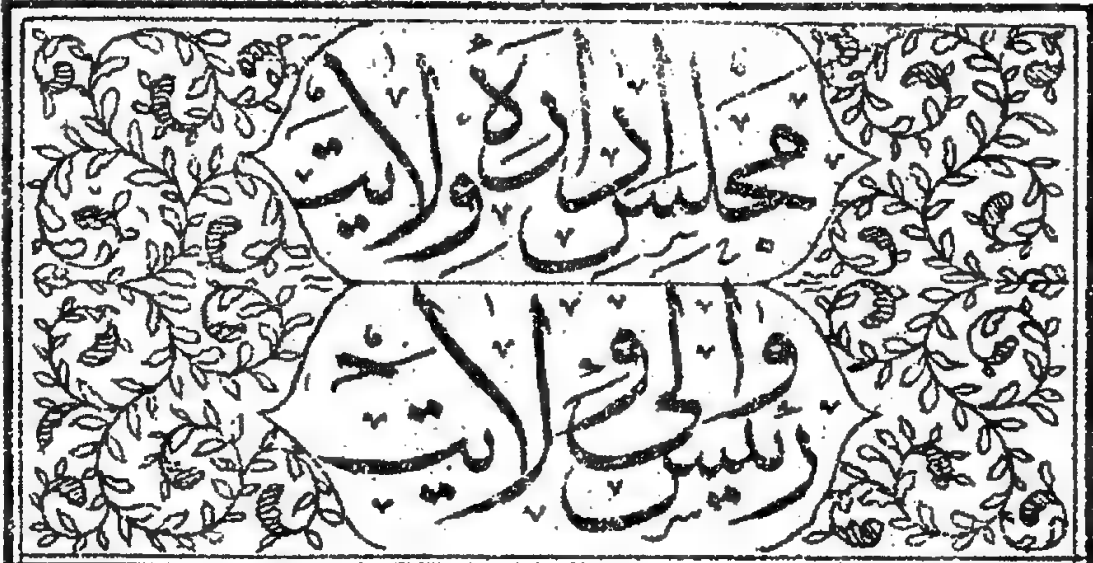 مجلس اداره ولايت
رئيس والى ولايت